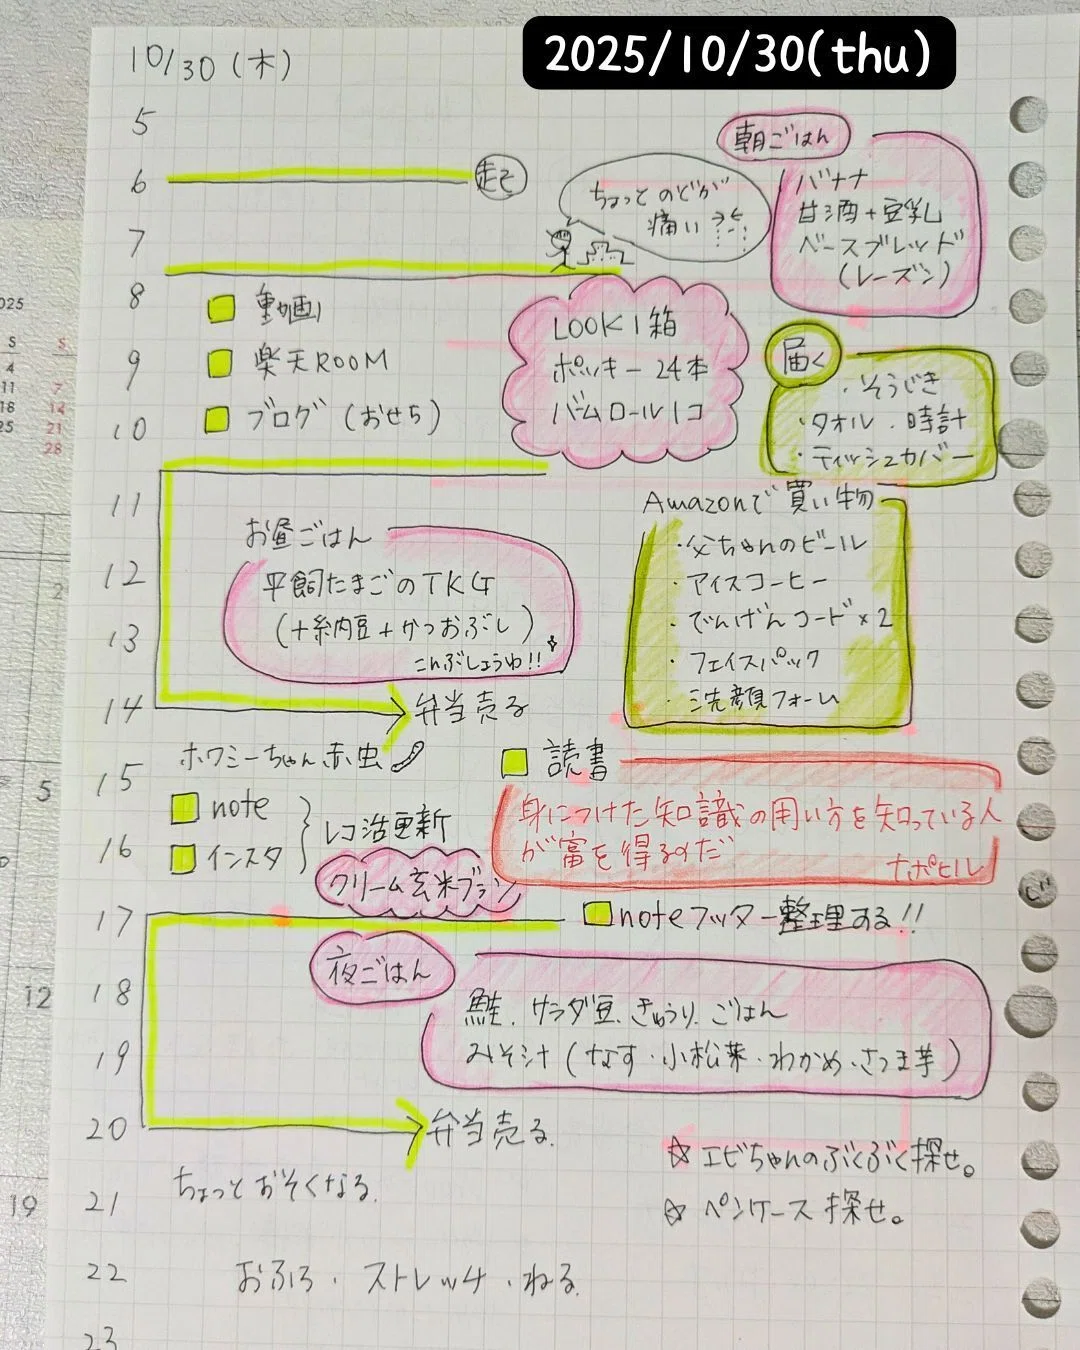 2025/10/30(thu)
10/30(木)
5
6
起そ
ちょっとのどが
痛い??
朝ごはん
バナナ
甘酒+豆乳
ベースブレッド
(レーズン)
7
8
動画
9
楽天ROOM
10
ブログ(おせち)
LOOK1箱
ポッキー24本
バームロール1コ
届く
・そうじき
・タオル・時計
・ティッシュカバー
11
お昼ごはん
12
平飼たまごのTKG
13
(+納豆+かつおぶし)
こんぶしょうゆ!!
14
弁当売る
Amazonで買い物
・父ちゃんのビール
・アイスコーヒー
・でんげんコード×2
・フェイスパック
・洗顔フォーム
ホワミーちゃん赤虫
15
note
16
インスタ
レコ活更新
クリーム玄米ブラン
読書
身につけた知識の用い方を知っている人
が富を得るのだ
ナポヒル
17
noteフッター整理する!!
夜ごはん
18
鮭.サラダ豆.きゅうり.ごはん
19
みそ汁(なす・小松菜・わかめ・さつま芋)
20
弁当売る.
☆エビちゃんのぶくぶく探せ。
21
ちょっとおそくなる.
☆ペンケース探せ。
22
おふろ・ストレッチ・ねる.
23
2025
S
S
4
11
7
18
14
25
21
28
2
5
12
19